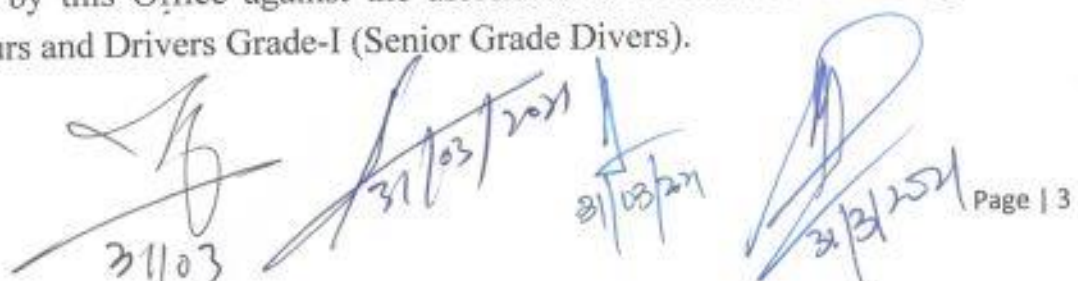 by this Office against the
urs and Drivers Grade-I (Senior Grade Divers).
31/03/2021
31/03/2021
31/3/2021
31/03
Page | 3